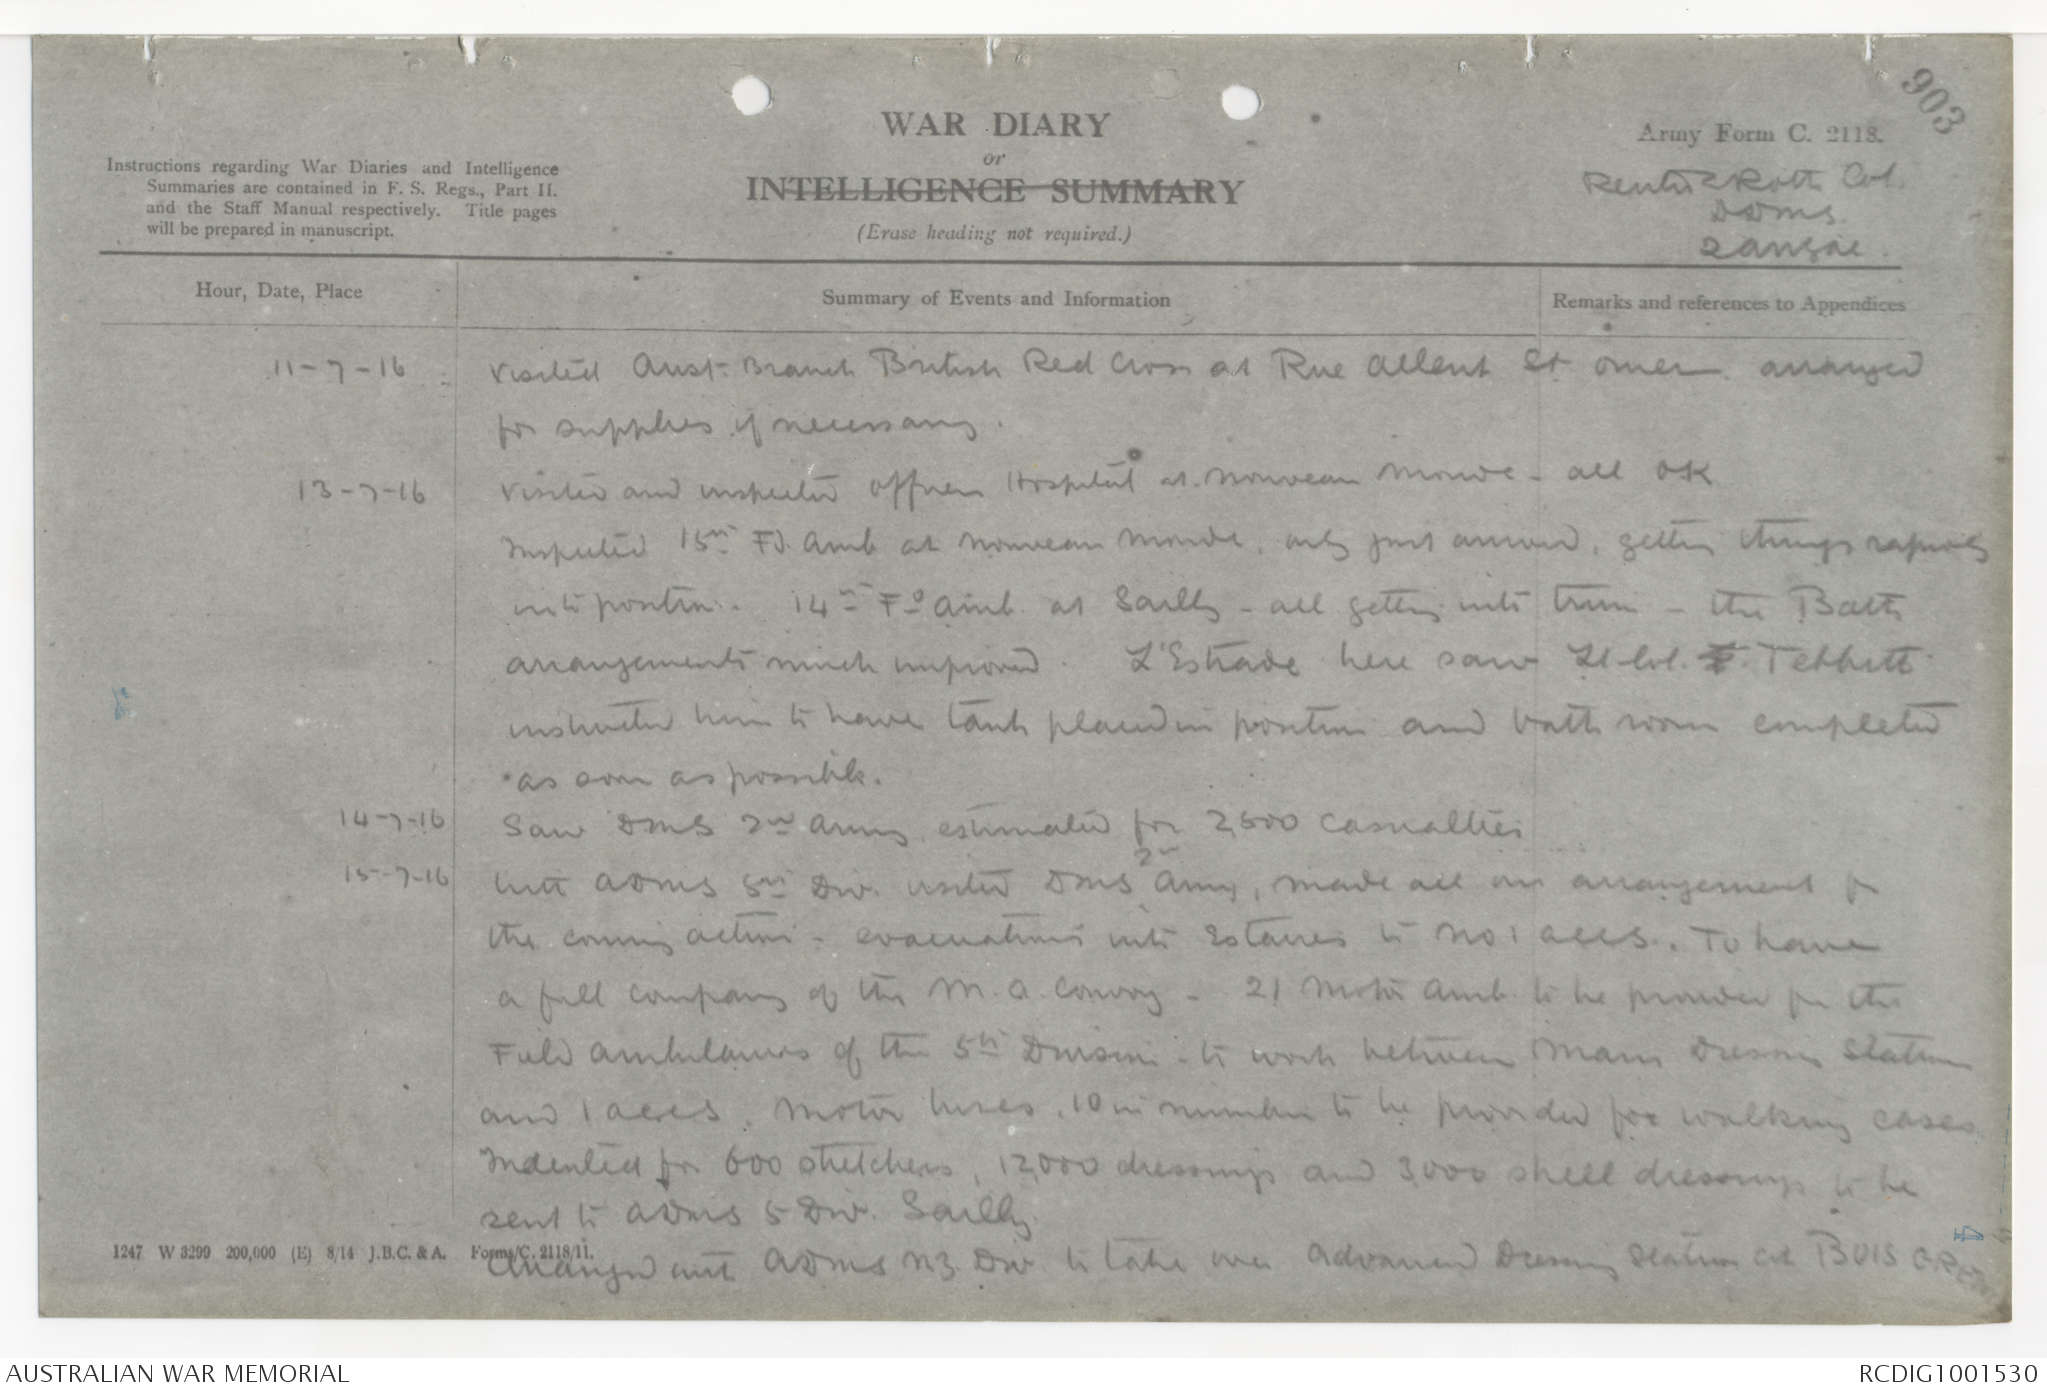 903
WAR DIARY
or
INTELLIGENCE SUMMARY
(Erase heading not required.)
Instructions regarding War Diaries and Intelligence
Summaries are contained in F. S. Regs., Part II.
and the Staff Manual respectively. Title pages
will be prepared in manuscript.
Army Form C. 2118.
Reuter E Roth Col.
DDMS.
2 Anzac.
Hour, Date, Place
Summary of Events and Information
Remarks and references to Appendices
11-7-16 Visited Aust. Branch British Red Cross at Rue Allent St. Omer. arranged
for supplies if necessary.
13-7-16 Visited and inspected Officers Hospital at Nouveau Monde - all OK
Inspected 15th Fd. Amb at Nouveau Monde, only just arrived, getting things rapidly
into position. 14th Fd Amb. at Sailly - all getting into trim - the Bath
arrangements much improved. L'Estrade here saw Lt Col. Tebbutt
instructed him to have tank placed in position and bath room completed
as soon as possible.
14-7-16 Saw DMS 2nd Army estimated for 2,500 casualties
15-7-16 With ADMS 5th Div. visited DMS 2nd Army, made all our arrangement for
the coming action - evacuations into Estaires to No 1 ACCS. To have
a full company of the M.A. Convoy - 21 Motor Amb. to be provided for the
Field Ambulances of the 5th Division - to work between Main Dressing Station
and 1 ACCS. Motor buses, 10 in number to be provided for walking cases
Indented for 600 stretchers, 12,000 dressings and 3,000 shell dressings to be
sent to ADMS 5 Div. Sailly.
Arranged with ADMS NZ Div. to take over Advanced Dressing Station at BOIS GRENIER
1247 W 3299 200,000 (E) 8/14 J.B.C. & A. Forms/C. 2118/11.
4
AUSTRALIAN WAR MEMORIAL
RCDIG1001530